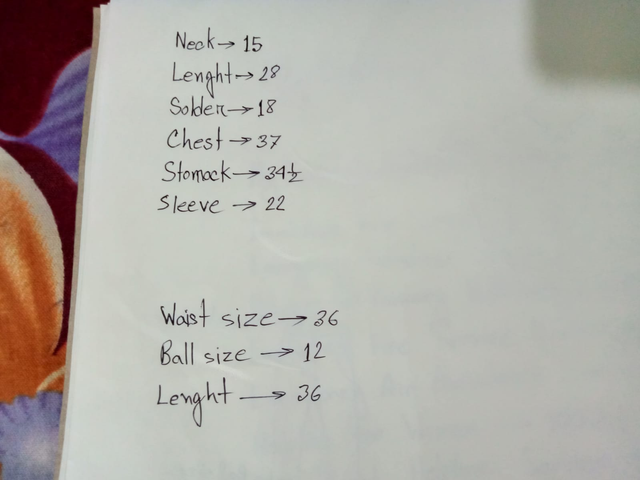 Neck → 15
Lenght → 28
Solder → 18
Chest → 37
Stomack → 34½
Sleeve → 22
Waist size → 36
Ball size → 12
Lenght → 36